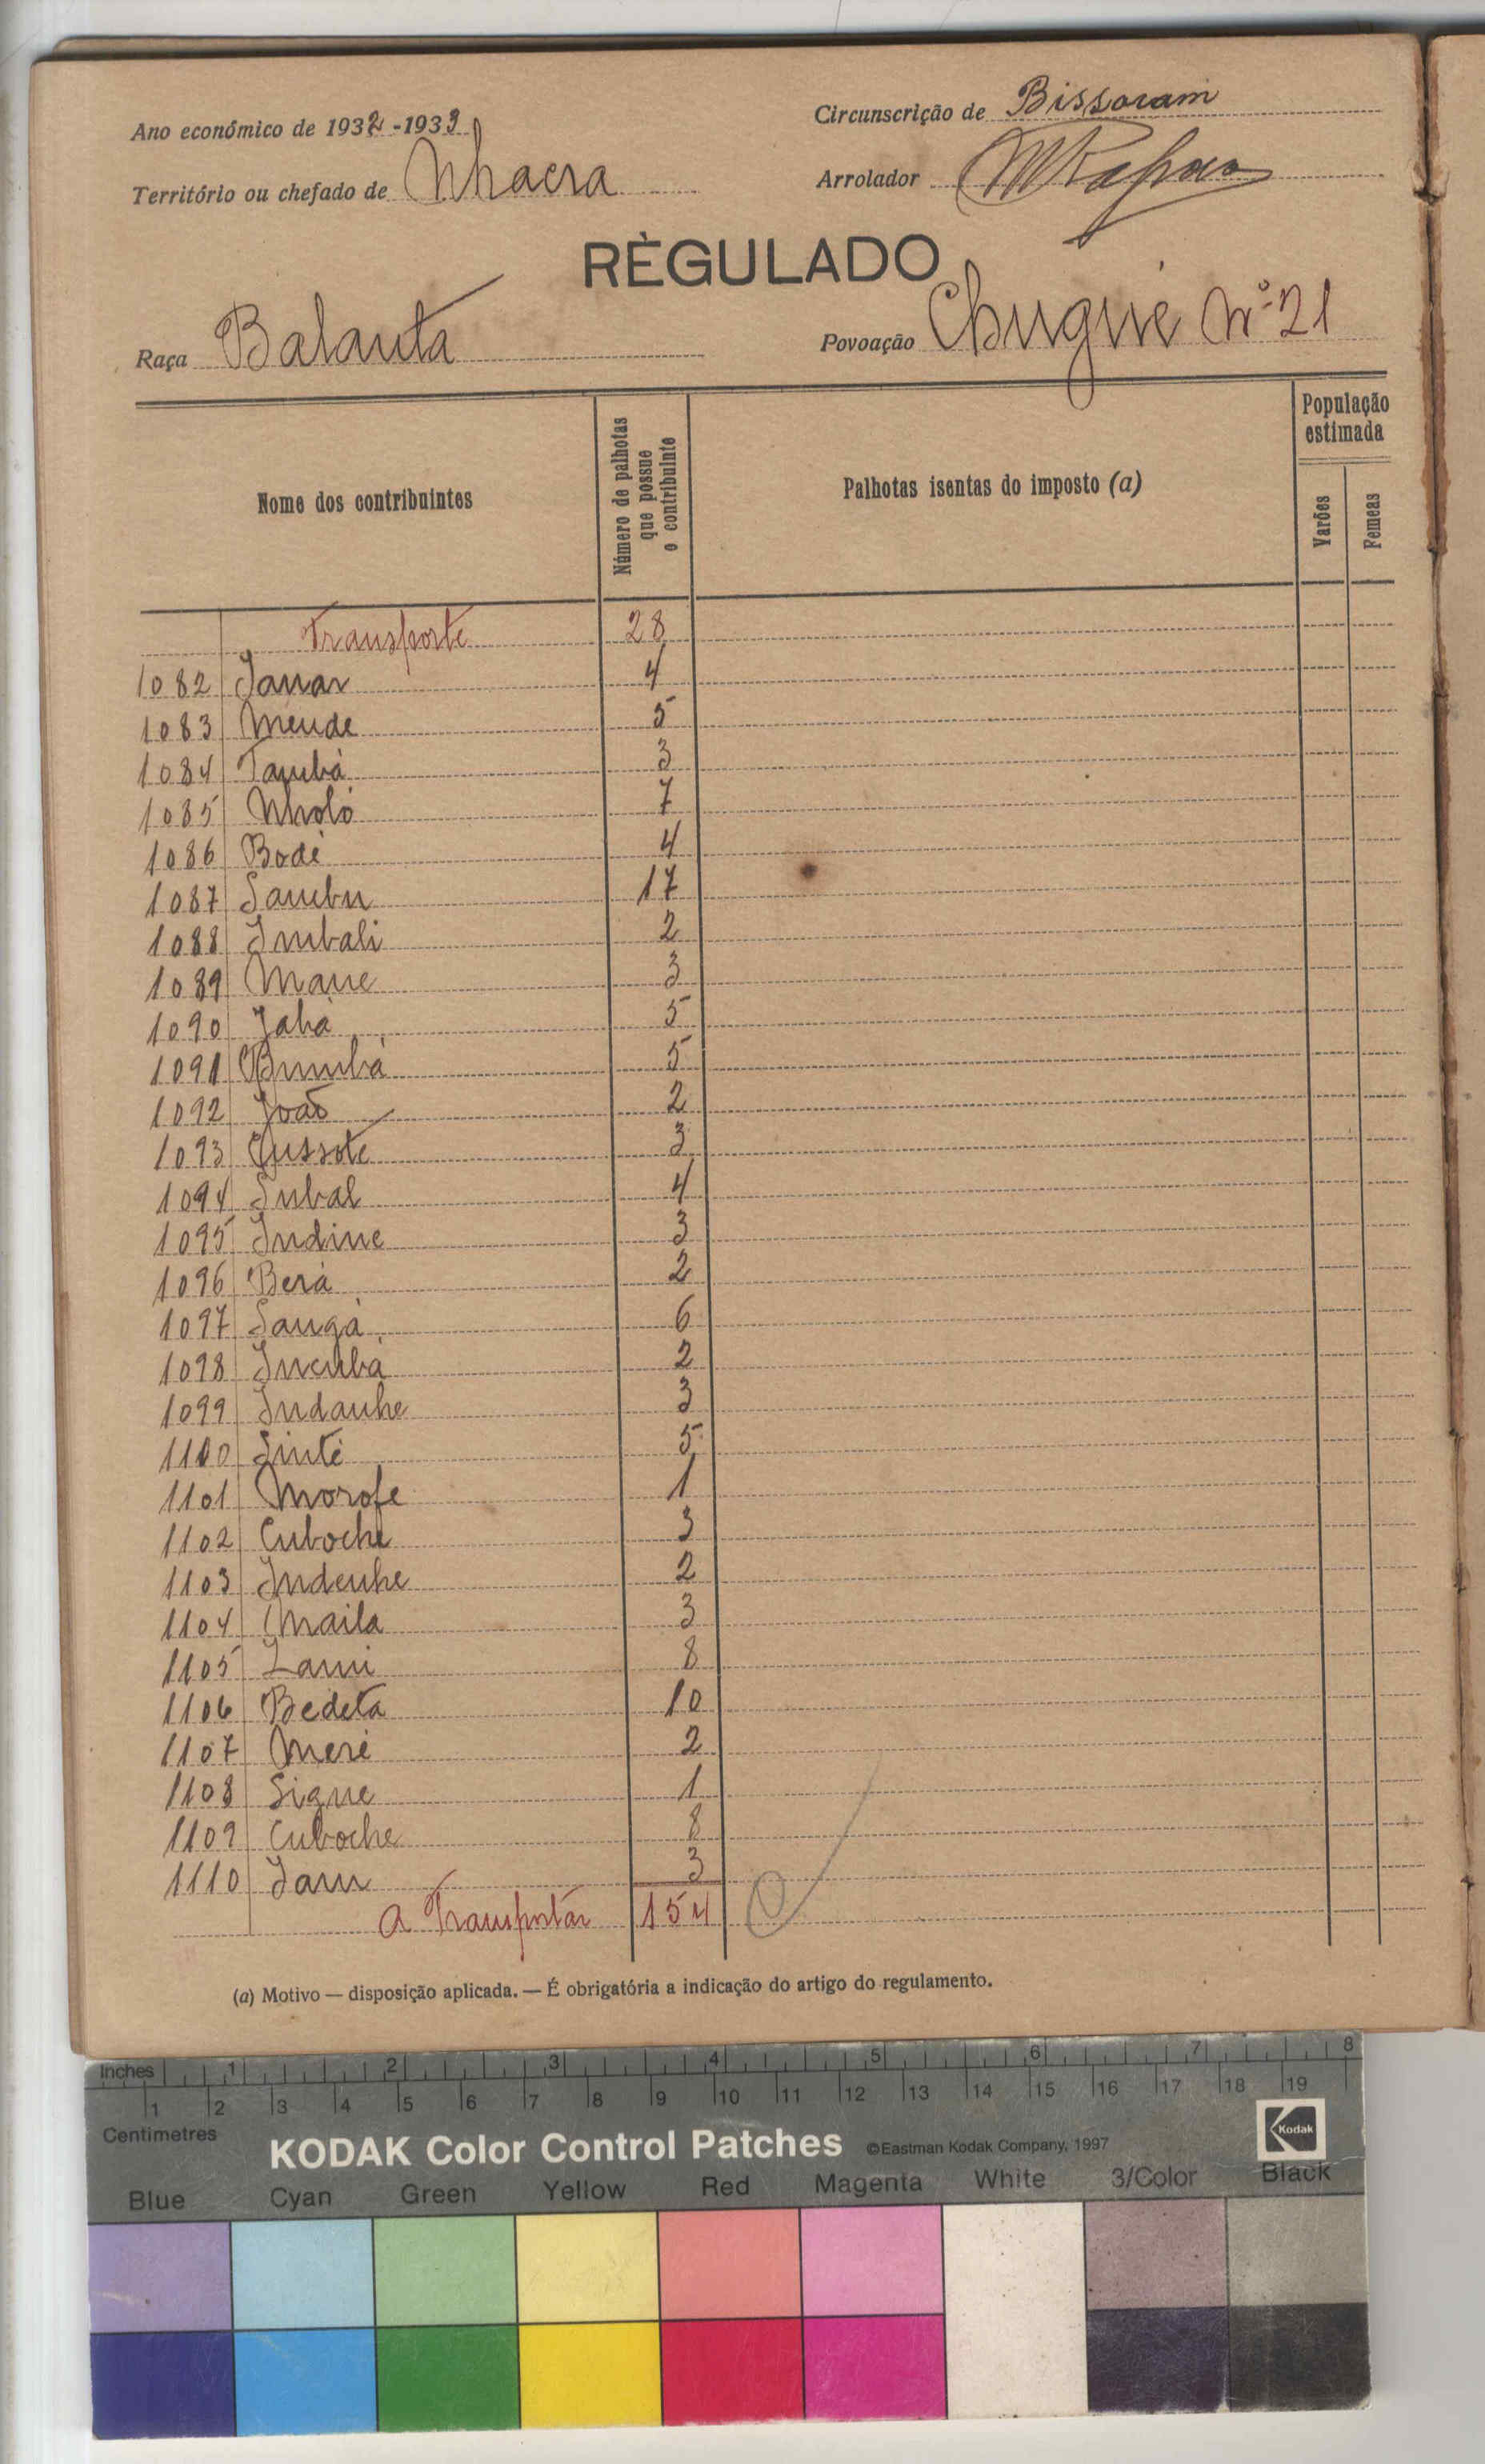 Ano económico de 1932-1933
Circunscrição de Bissoram
Território ou chefado de Nhacra
Arrolador
RÈGULADO
Raça Balanta
Povoação Chugué Nº 21
Nome dos contribuintes
Número de palhotas que possue o contribuinte
Palhotas isentas do imposto (a)
População estimada
Varões
Femeas
Transporte 28
1082 Janar 4
1083 Mende 5
1084 Tambá 3
1085 Nholó 7
1086 Bodé 4
1087 Sambu 17
1088 Imbali 2
1089 Mane 3
1090 Jahá 5
1091 Bumbá 5
1092 João 2
1093 Cussote 3
1094 Inbal 4
1095 Indine 3
1096 Berá 2
1097 Sangá 6
1098 Incubá 2
1099 Indanhe 3
1100 Sinté 5
1101 Morofe 1
1102 Cuboche 3
1103 Indenhe 2
1104 Maila 3
1105 Lami 8
1106 Bedeta 10
1107 Meré 2
1108 Signe 1
1109 Cuboche 8
1110 Jam 3
A Transportar 154
(a) Motivo — disposição aplicada. — É obrigatória a indicação do artigo do regulamento.
Inches 1 2 3 4 5 6 7 8
1 2 3 4 5 6 7 8 9 10 11 12 13 14 15 16 17 18 19
Centimetres
KODAK Color Control Patches ©Eastman Kodak Company, 1997 Kodak
Blue Cyan Green Yellow Red Magenta White 3/Color Black